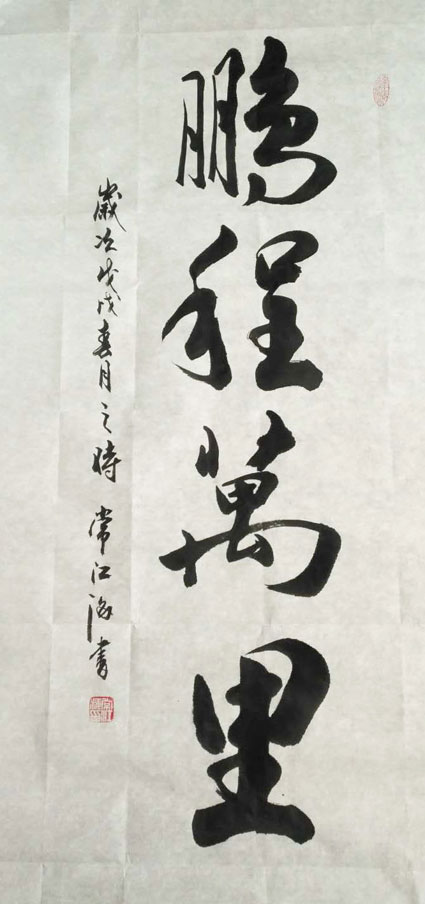 鵬程萬里
歲次戊戌春月之時 常江海書